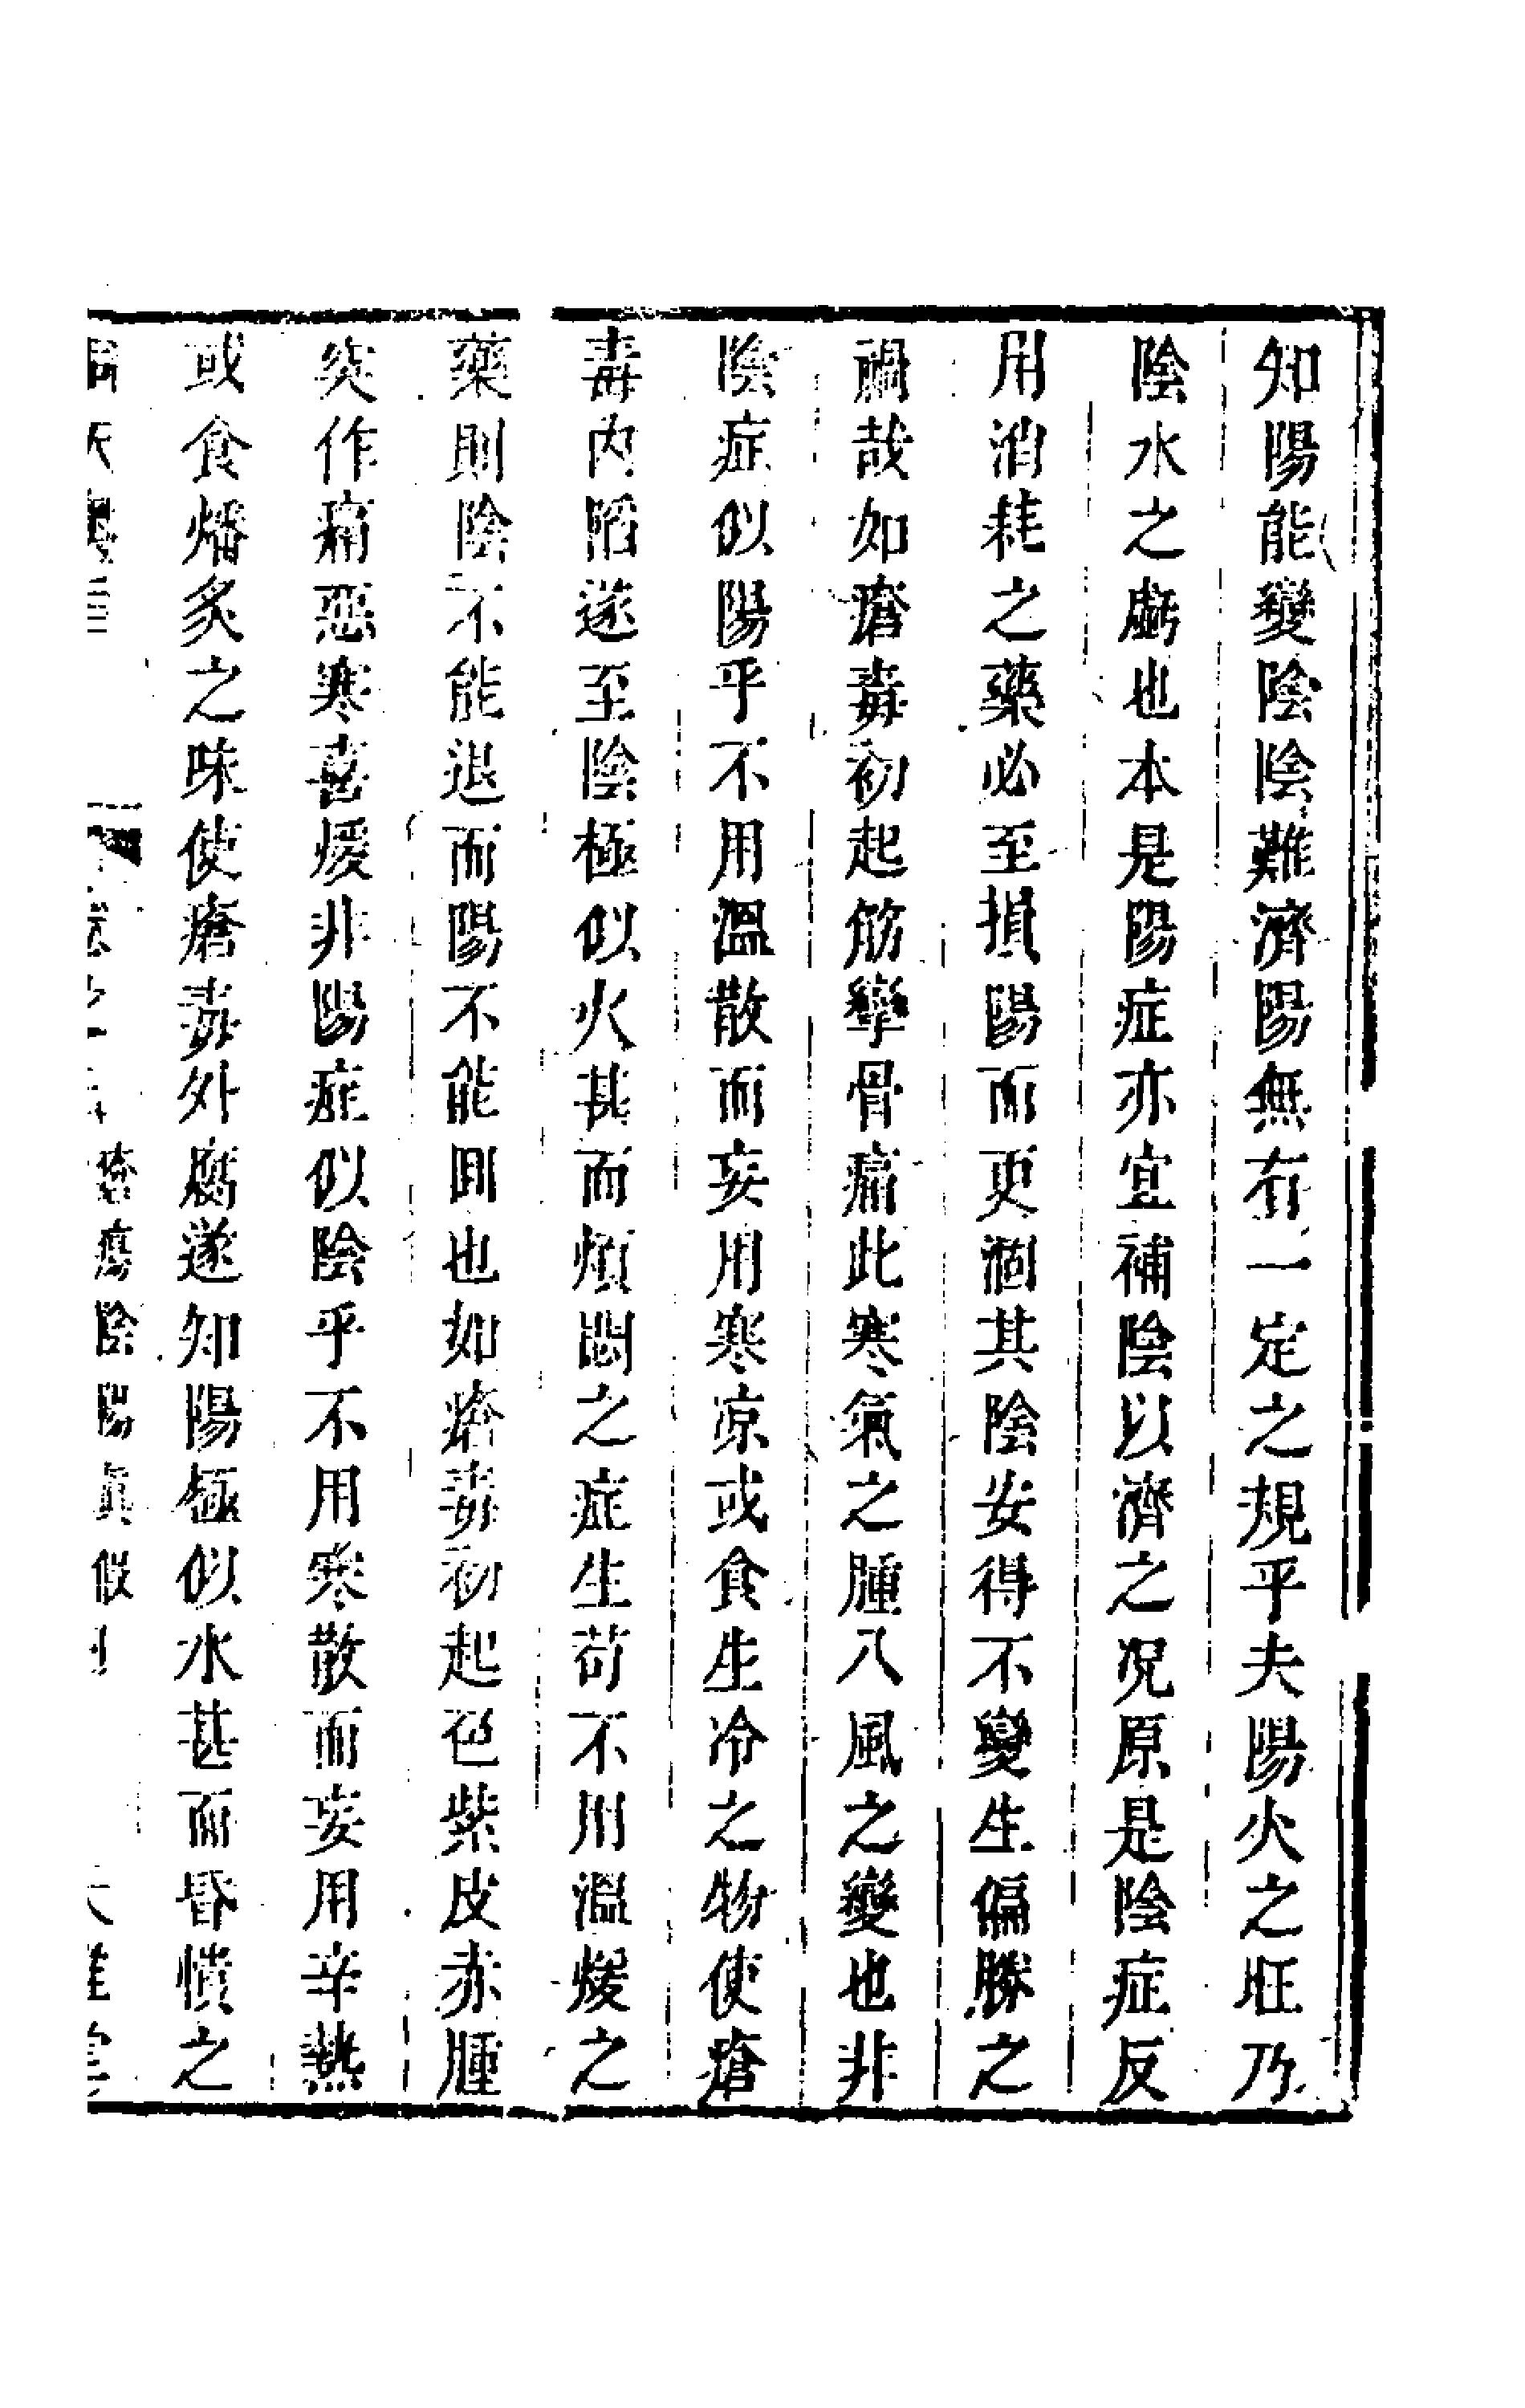 知陽能變陰陰難濟陽無有一定之規乎夫陽火之旺乃
陰水之虧也本是陽症亦宜補陰以濟之况原是陰症反
用消耗之藥必至損陽而更涸其陰安得不變生偏勝之
禍哉如瘡毒初起筋攣骨痛此寒氣之腫八風之變也非
陰症似陽乎不用溫散而妄用寒凉或食生冷之物使瘡
毒内陷遂至陰極似火甚而煩悶之症生苟不用溫煖之
藥則陰不能退而陽不能囘也如瘡毒初起色紫皮赤腫
突作痛惡寒喜煖非陽症似陰乎不用寒散而妄用辛熱
或食燔炙之味使瘡毒外腐遂知陽極似水甚而昏憒之
瘡瘍陰陽真假